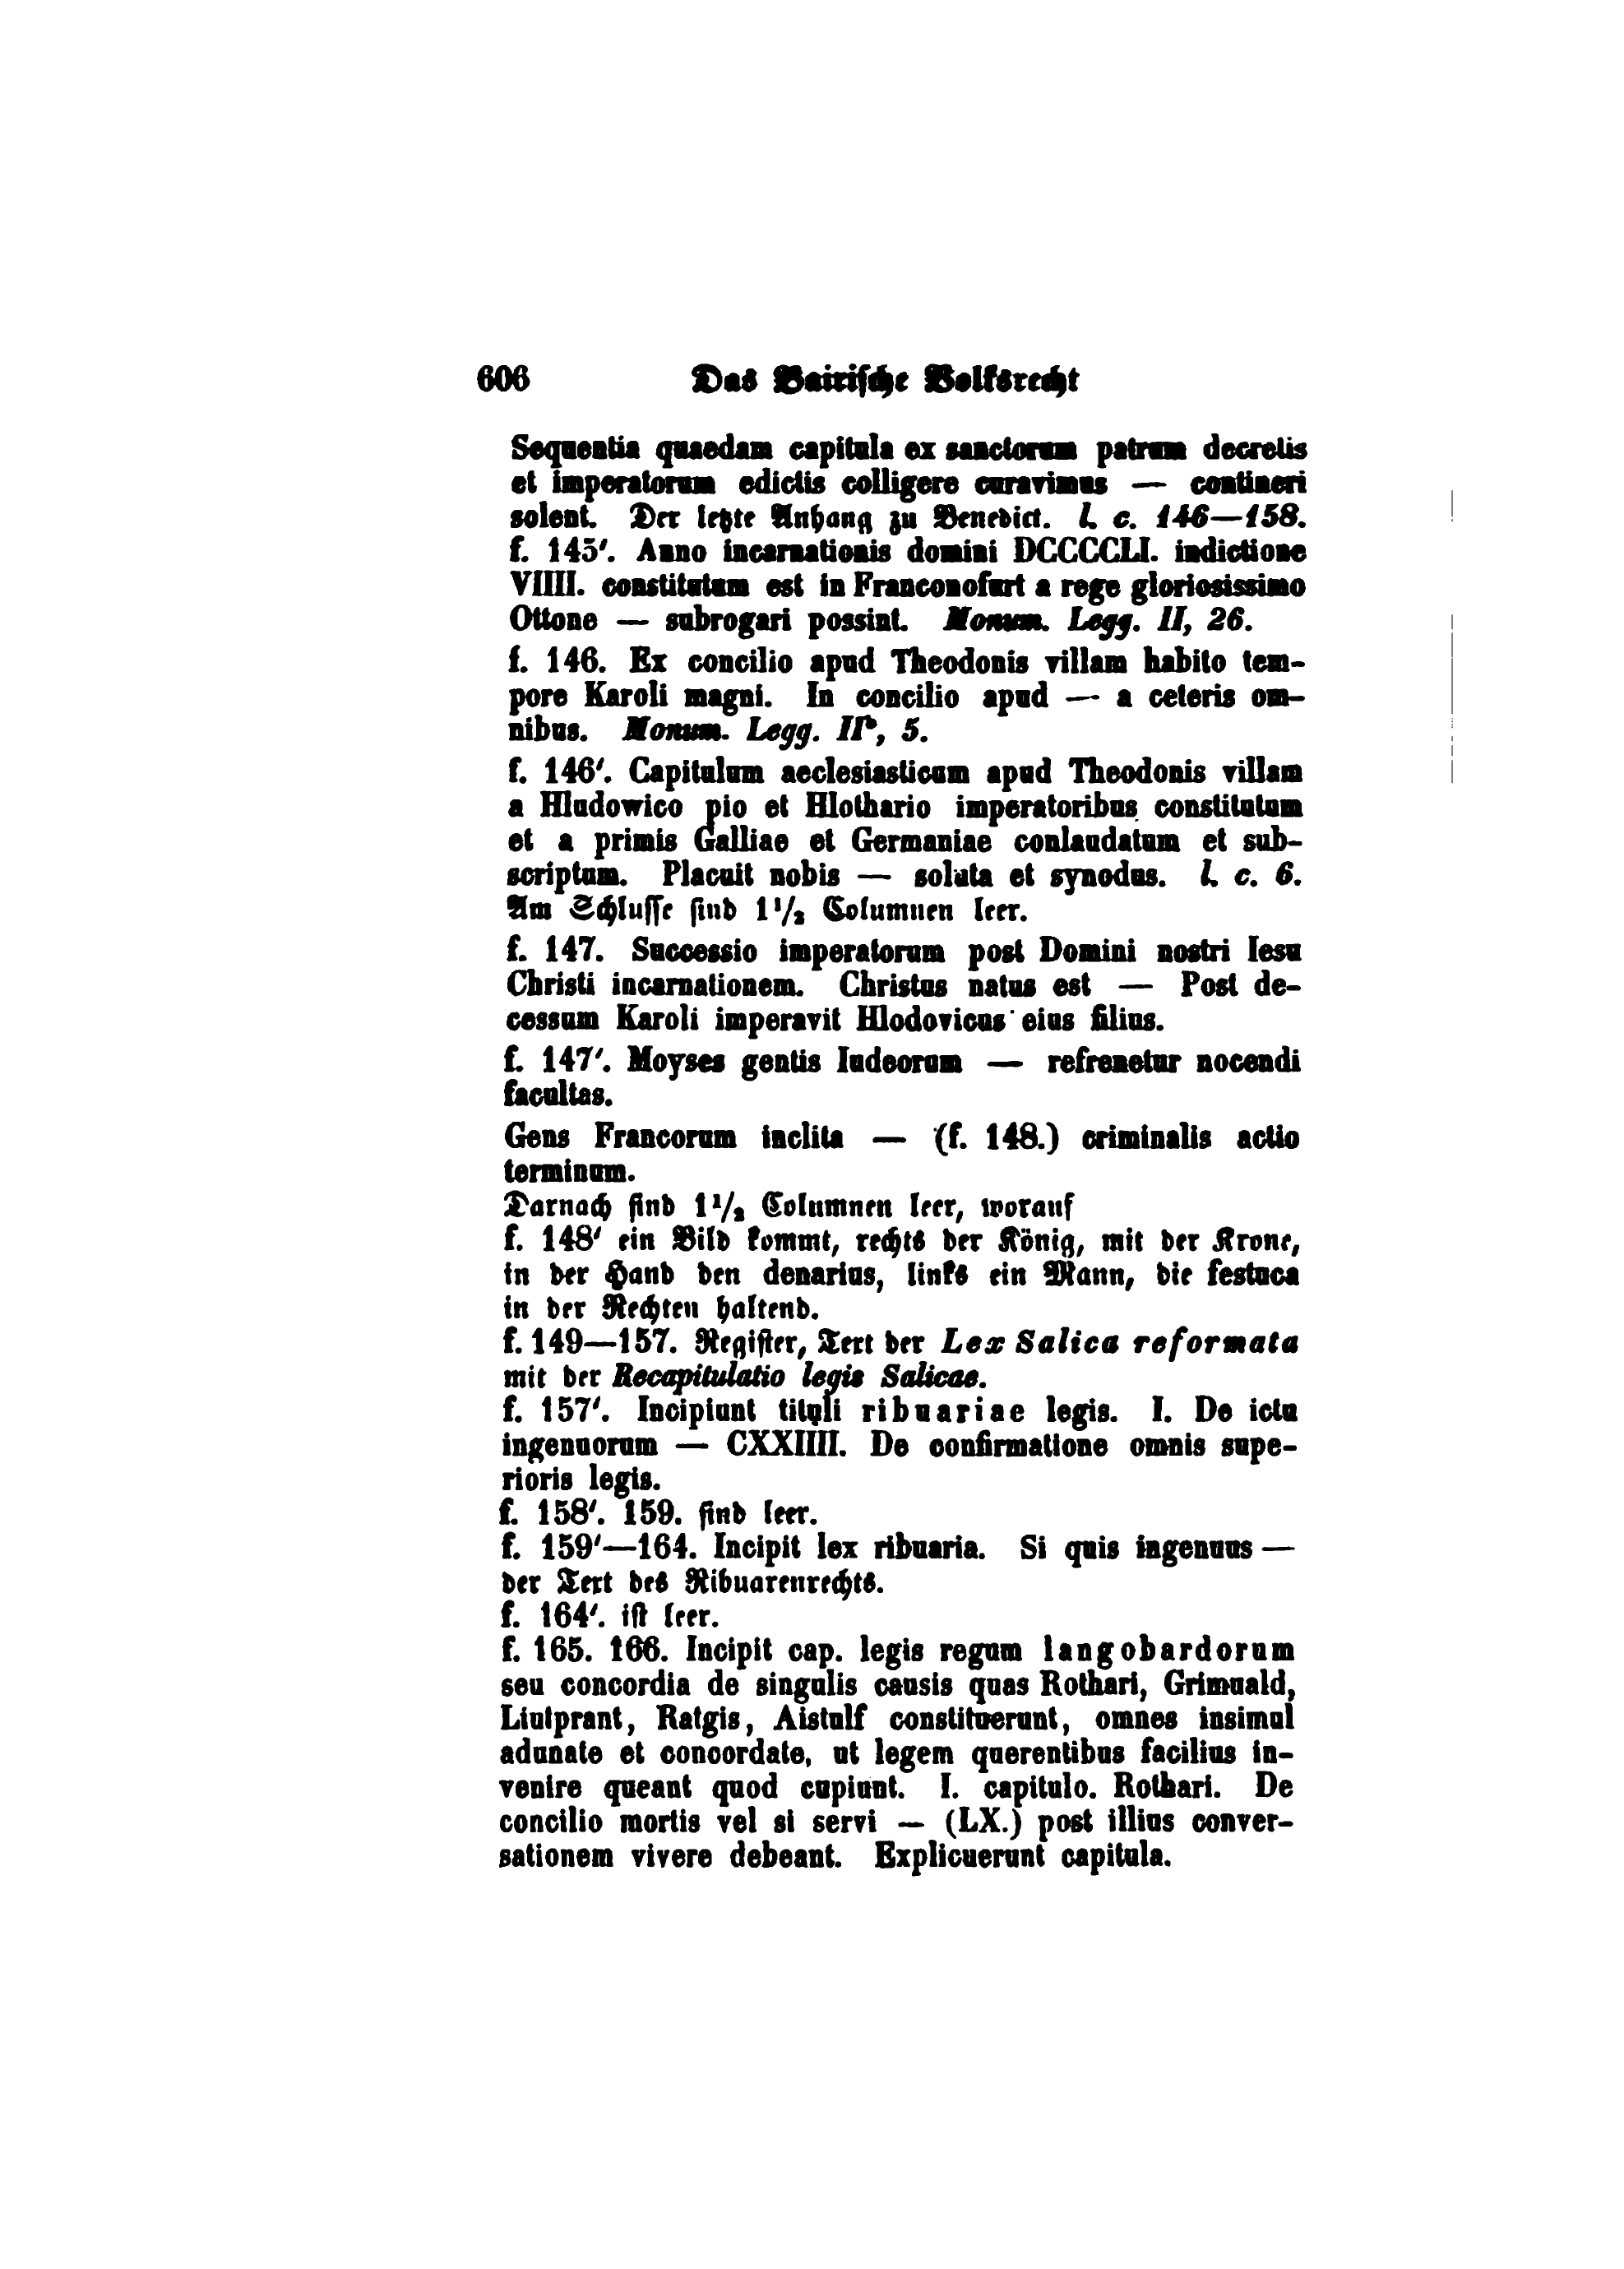 606 Das Bairische Volksrecht
Sequentia quaedam capitula ex sanctorum patrum decretis
et imperatorum edictis colligere curavimus — contineri
solent. Der letzte Anhang zu Benedict. l. c. 146—158.
f. 145′. Anno incarnationis domini DCCCCLI. indictione
VIIII. constitutum est in Franconofurt a rege gloriosissimo
Ottone — subrogari possint. Monum. Legg. II, 26.
f. 146. Ex concilio apud Theodonis villam habito tem-
pore Karoli magni. In concilio apud — a ceteris om-
nibus. Monum. Legg. IIb, 5.
f. 146′. Capitulum aeclesiasticum apud Theodonis villam
a Hludowico pio et Hlothario imperatoribus constitutum
et a primis Galliae et Germaniae conlaudatum et sub-
scriptum. Placuit nobis — soluta et synodus. l. c. 6.
Am Schlusse sind 1 1/2 Columnen leer.
f. 147. Successio imperatorum post Domini nostri Iesu
Christi incarnationem. Christus natus est — Post de-
cessum Karoli imperavit Hlodovicus eius filius.
f. 147′. Moyses gentis Iudeorum — refrenetur nocendi
facultas.
Gens Francorum inclita — (f. 148.) criminalis actio
terminum.
Darnach sind 1 1/2 Columnen leer, worauf
f. 148′ ein Bild kommt, rechts der König, mit der Krone,
in der Hand den denarius, links ein Mann, die festuca
in der Rechten haltend.
f. 149—157. Register, Text der Lex Salica reformata
mit der Recapitulatio legis Salicae.
f. 157′. Incipiunt tituli ribuariae legis. I. De ictu
ingenuorum — CXXIIII. De confirmatione omnis supe-
rioris legis.
f. 158′. 159. sind leer.
f. 159′—164. Incipit lex ribuaria. Si quis ingenuus —
der Text des Ribuarenrechts.
f. 164′. ist leer.
f. 165. 166. Incipit cap. legis regum langobardorum
seu concordia de singulis causis quas Rothari, Grimuald,
Liutprant, Ratgis, Aistulf constituerunt, omnes insimul
adunate et concordate, ut legem querentibus facilius in-
venire queant quod cupiunt. I. capitulo. Rothari. De
concilio mortis vel si servi — (LX.) post illius conver-
sationem vivere debeant. Explicuerunt capitula.